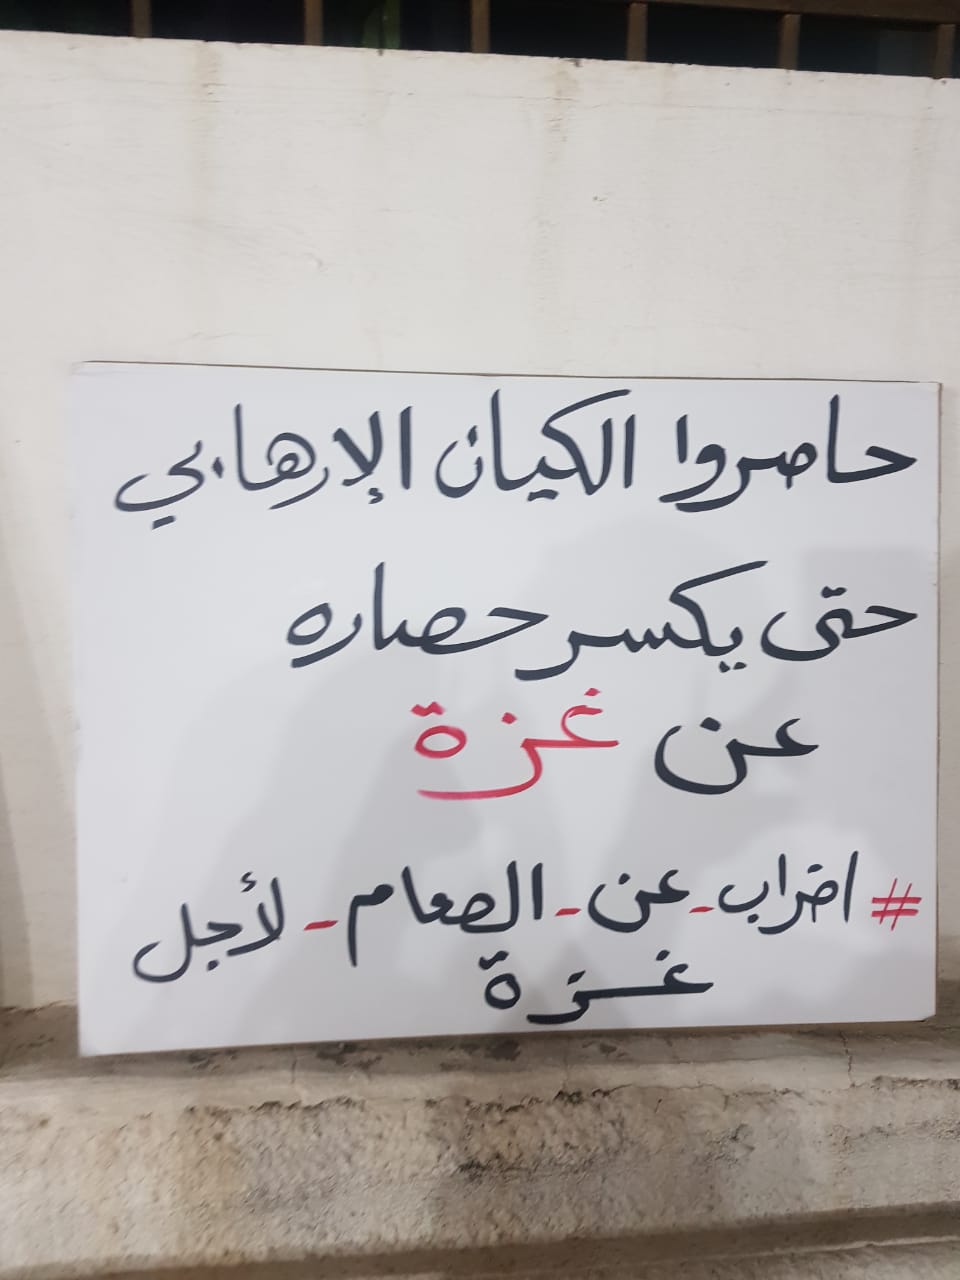 حاصروا الكيان الإرهابي
حتى يكسر حصاره
عن غزة
# اضراب_عن_الطعام_لأجل
غزة